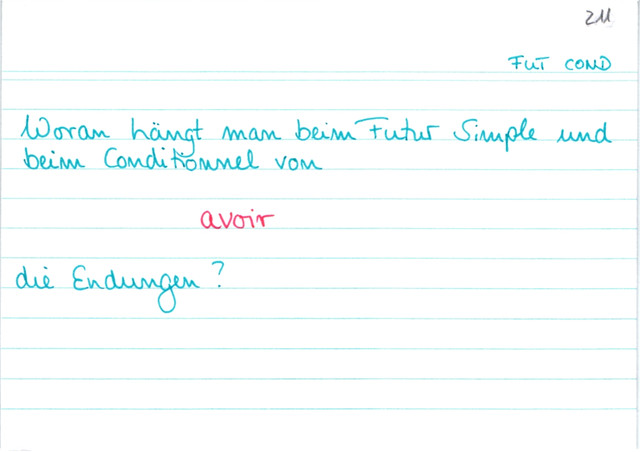 211
FUT COND
Woran hängt man beim Futur Simple und
beim Conditionnel von
avoir
die Endungen?